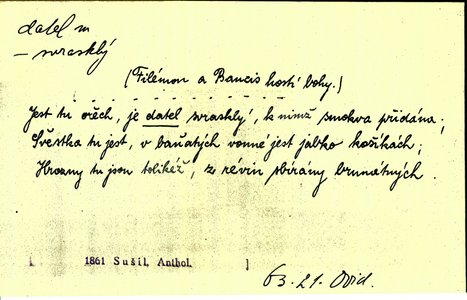 datel m
– svrasklý
(Filémon a Baucis hostí bohy.)
Jest tu ořech, je datel svrasklý, k nimž smokva přidána;
Švěstka tu jest, v baňatých vonné jest jablko košíkách;
Hrozny tu jsou tolikéž, z révin sbírány brunátných.
[ 1861 Sušil, Anthol. ]
63. 21. Ovid.